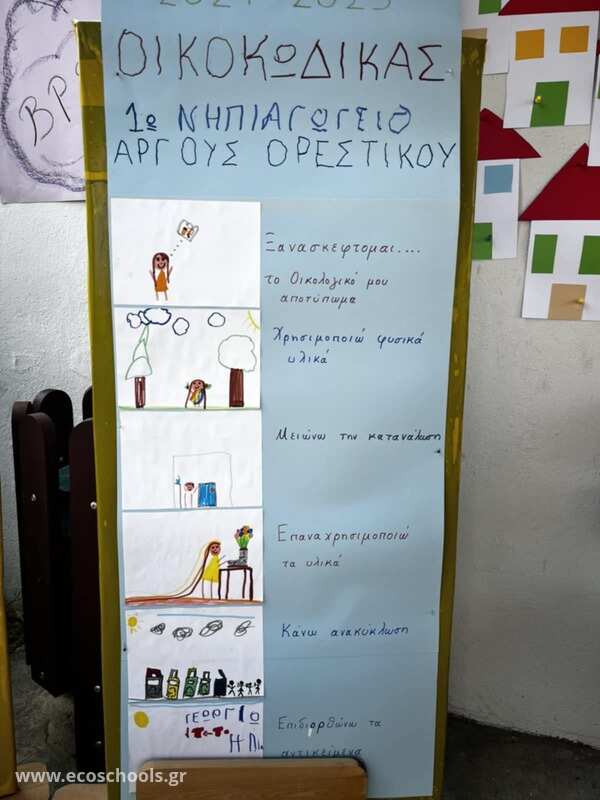 ΒΡ
ΟΙΚΟΚΩΔΙΚΑΣ
1ο ΝΗΠΙΑΓΩΓΕΙΟ
ΑΡΓΟΥΣ ΟΡΕΣΤΙΚΟΥ
Ξανασκεφτομαι....
το Οικολογικό μου
αποτύπωμα
Χρησιμοποιώ φυσικά
υλικά
Μειώνω την κατανάλωση
Επαναχρησιμοποιώ
τα υλικά
Κάνω ανακύκλωση
ΓΕΩΡΓΙΟ
Επιδιορθώνω τα
αντικείμενα
www.ecoschools.gr